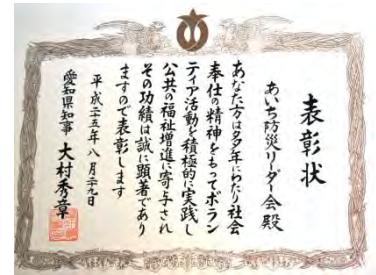 表彰状
あいち防災リーダー会殿
あなた方は多年にわたり社会
奉仕の精神をもってボラン
ティア活動を積極的に実践し
公共の福祉増進に寄与され
その功績は誠に顕著であり
ますので表彰します
平成二五年八月二九日
愛知県知事 大村秀章